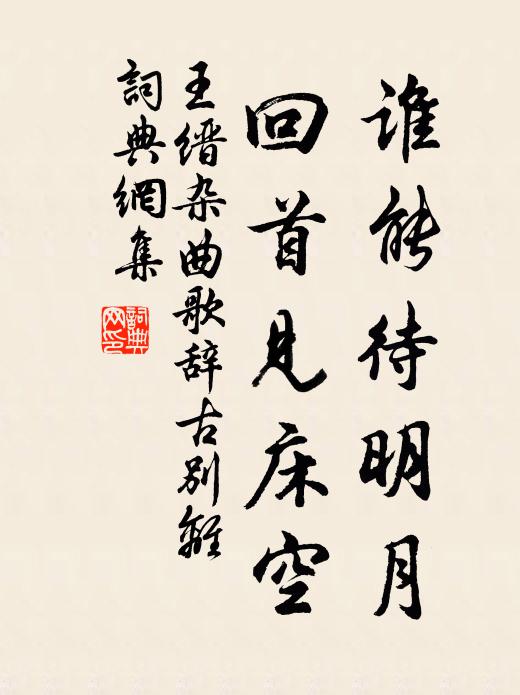 谁能待明月
回首见床空
王缙杂曲歌辞古别离
詞典網集
詞典网印